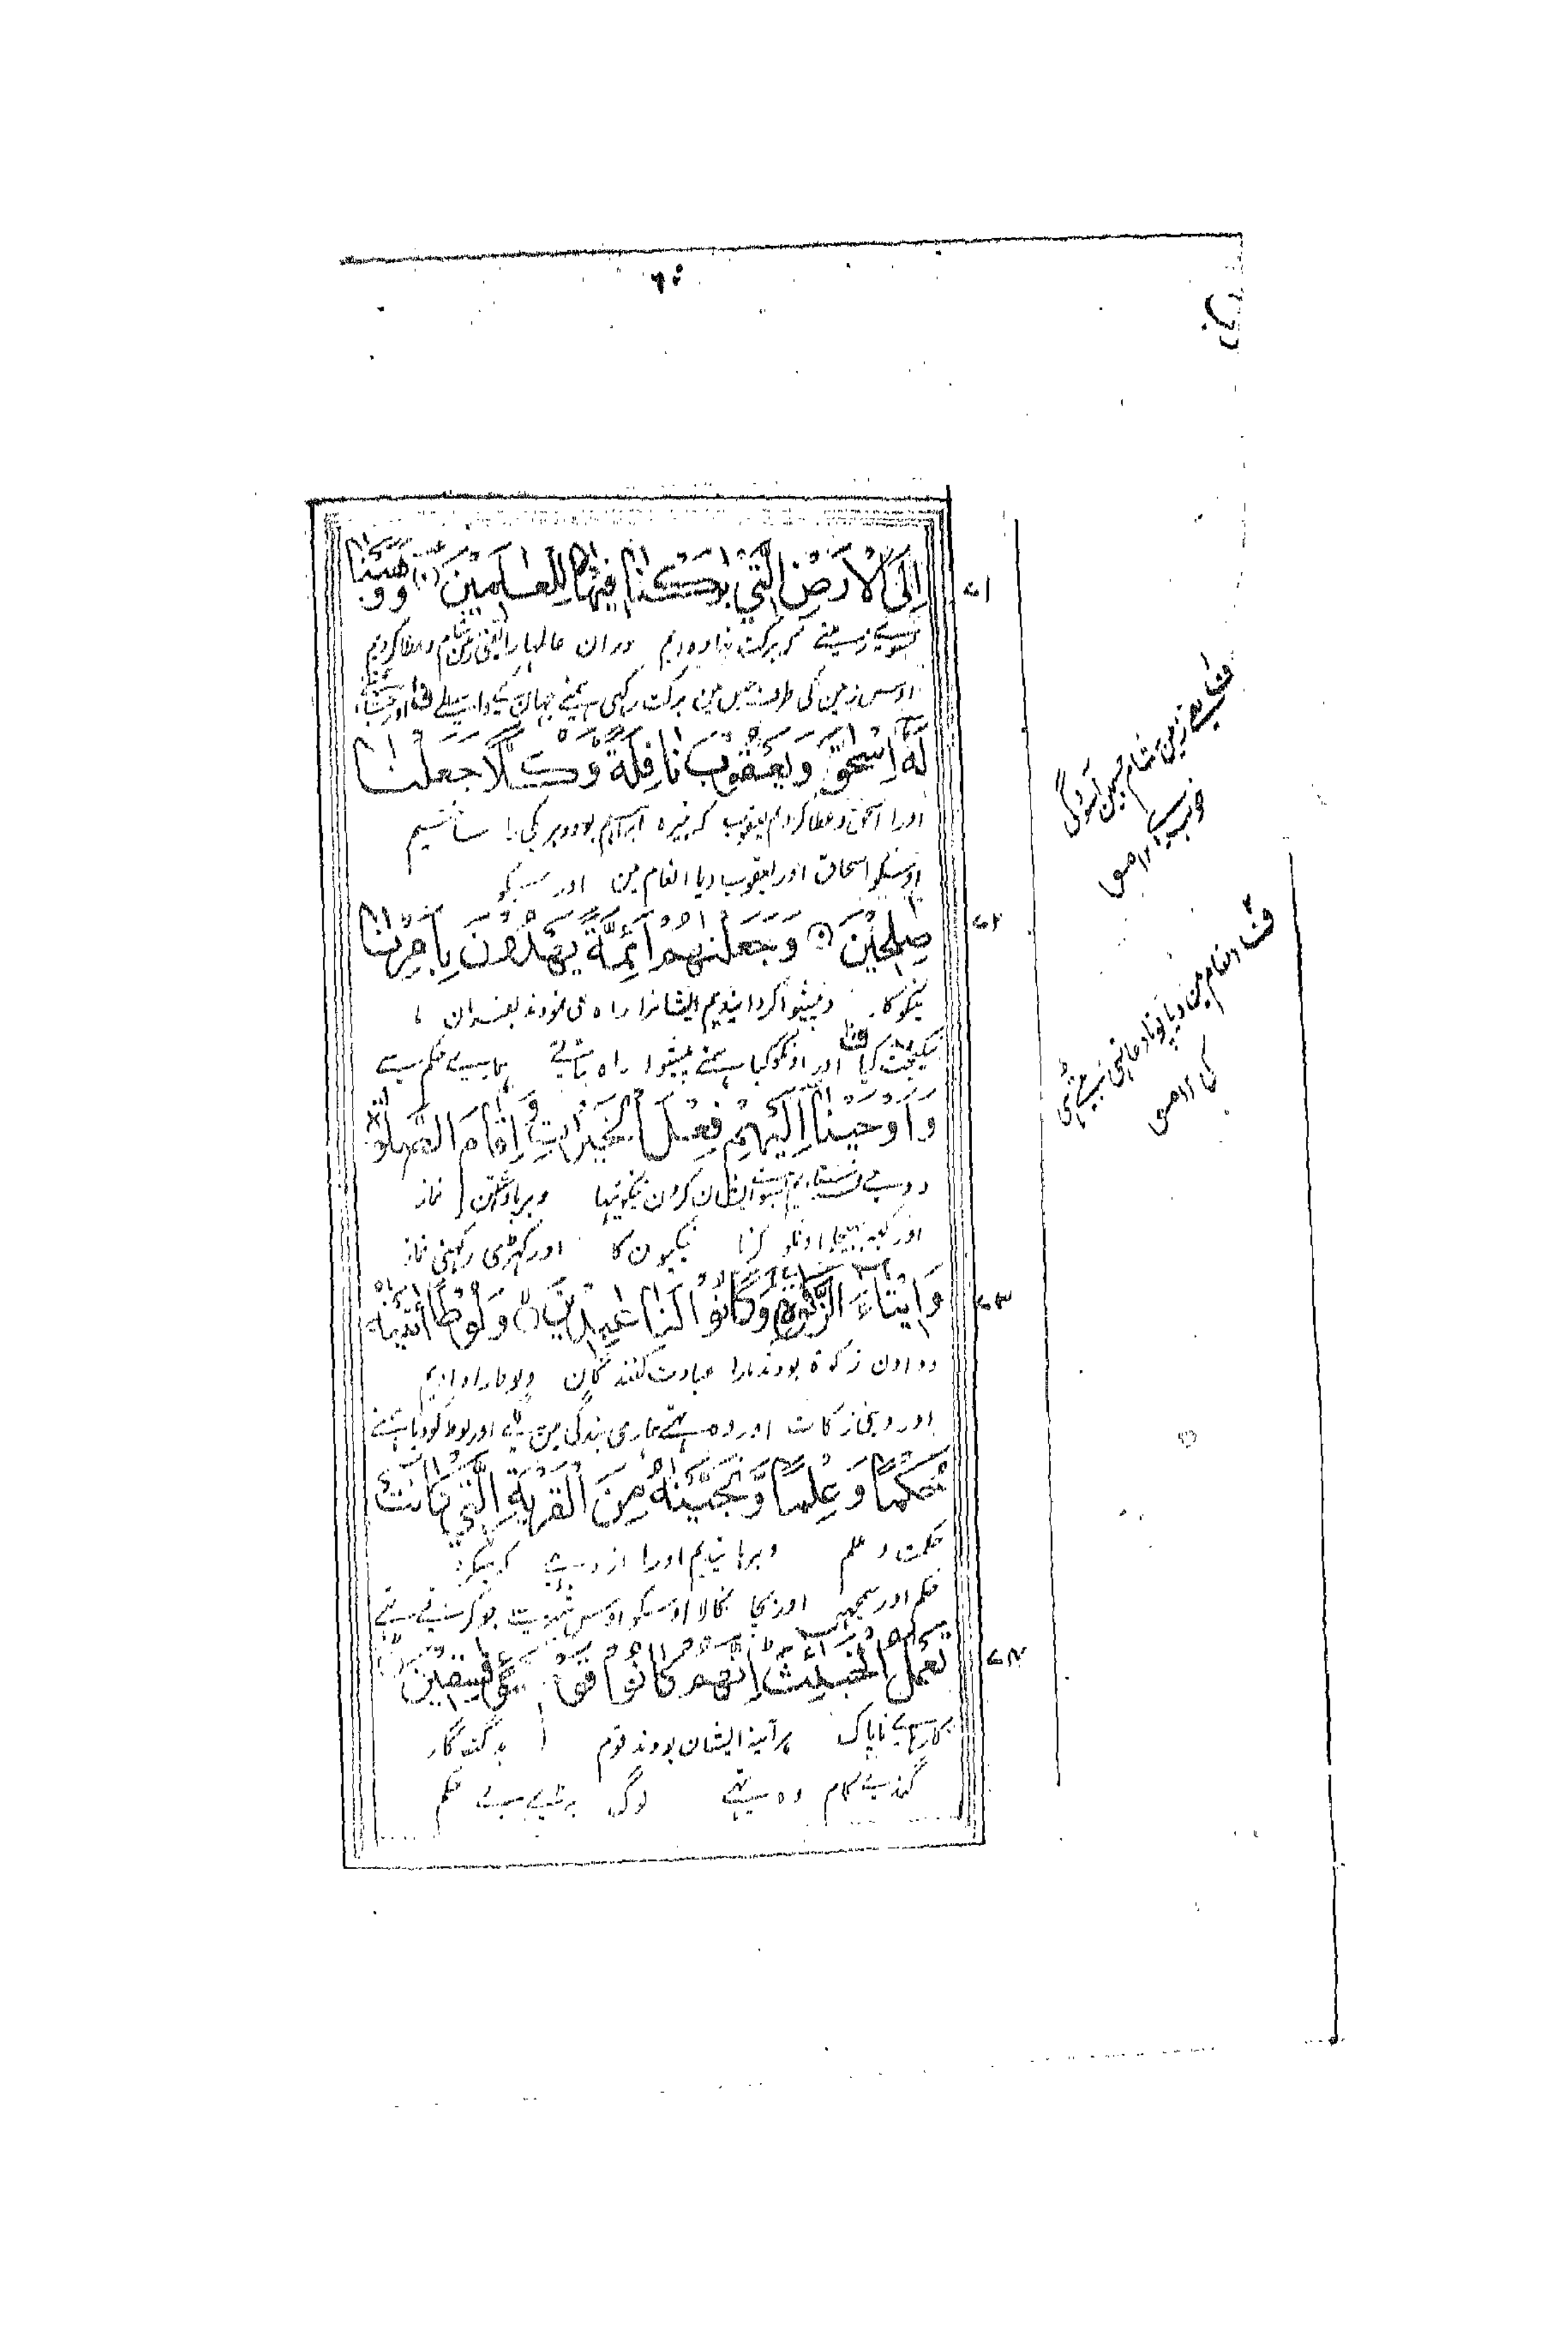 إِلَى الْأَرْضِ الَّتِي بٰرَكْنَا فِيْهَا لِلْعٰلَمِيْنَ وَوَهَبْنَا
۷۱
بسوے زمینے کہ برکت نہادہ ایم دران عالمہارا یعنی زمین شام و عطا کردیم
اوس زمین کی طرف جس مین برکت رکہی ہمنے جہان کے واسطے ف اور بخشا
لَهٗ اِسْحٰقَ وَيَعْقُوْبَ نَافِلَةً وَكُلًّا جَعَلْنَا
اورا اسحق و عطا کردیم یعقوب کہ نبیرہ ابراہیم بود و ہر یکی را ساختیم
اوسکو اسحاق اور یعقوب دیا انعام مین اور سبکو
صٰلِحِيْنَ وَجَعَلْنٰهُمْ اَئِمَّةً يَهْدُوْنَ بِاَمْرِنَا
۷۲
نیکوکار و پیشوا گردانیدیم ایشانرا راہ می نمودند بفرمان
نیکبخت کیا ف اور اونکو کیا ہمنے پیشوا راہ بتاتے ہمارے حکم سے
وَاَوْحَيْنَا اِلَيْهِمْ فِعْلَ الْخَيْرٰتِ وَاِقَامَ الصَّلٰوةِ
و وحے فرستادیم بسوے ایشان کردن نیکوئیہا و برپا داشتن نماز
اور کہہ بہیجا اونکو کرنا نیکیون کا اور کہڑی رکہنی نماز
وَاِيْتَاءَ الزَّكٰوةِ وَكَانُوْا لَنَا عٰبِدِيْنَ وَلُوْطًا اٰتَيْنٰهُ
۷۳
و دادن زکوة بودند مارا عبادت کنندگان و لوط را دادیم
اور دینی زکات اور وہ تہے ہماری بندگی مین لگے اور لوط کو دیا ہمنے
حُكْمًا وَعِلْمًا وَنَجَّيْنٰهُ مِنَ الْقَرْيَةِ الَّتِيْ كَانَتْ
حکمت و علم و برہانیدیم اورا از دہے کہ میکرد
حکم اور سمجہہ اور بچا نکالا اوسکو اوس بستی سے جو کرتے تہے
تَعْمَلُ الْخَبٰئِثَ اِنَّهُمْ كَانُوْا قَوْمَ سَوْءٍ فٰسِقِيْنَ
۷۴
کارہاے ناپاک ہر آینہ ایشان بودند قوم بد گنہگار
گندے کام وہ تہے لوگ برے بے حکم
ف یعنے زمین شام جسمین آسودگی
خوب ہے ۱۲ منہ
ف انعام مین دیا پوتا دعا تہی بیٹے ہی
کی ۱۲ منہ